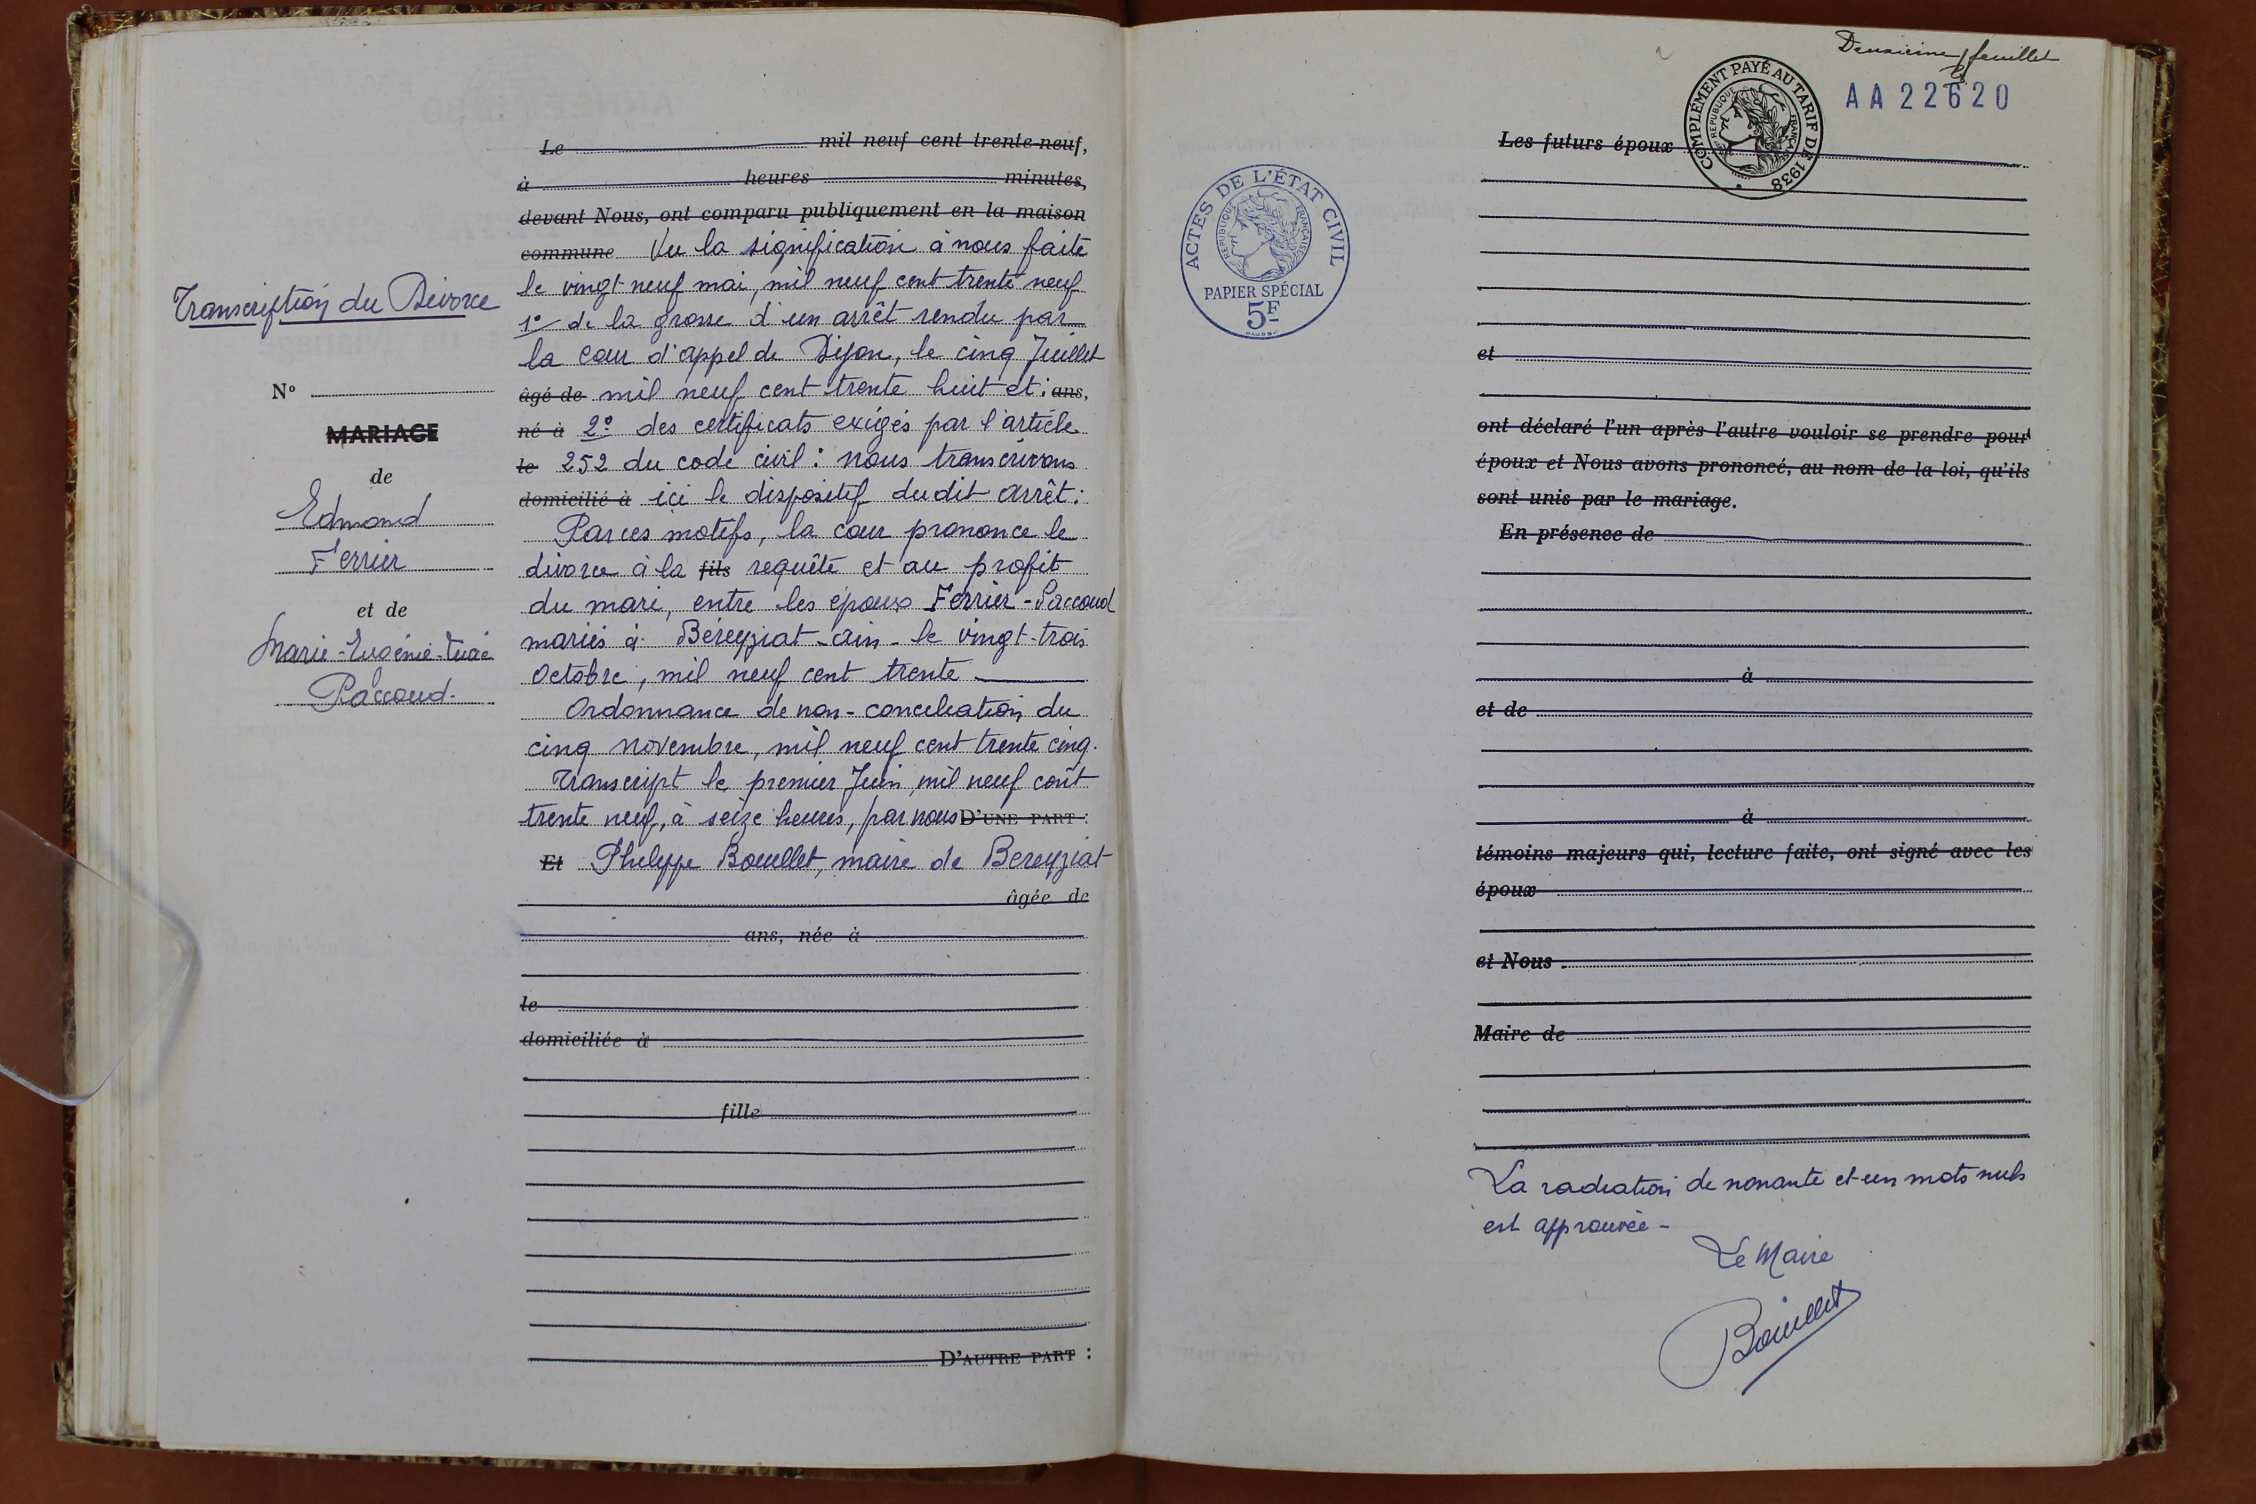 Transcription du Divorce
N°
MARIAGE
de
Edmond
Ferrier
et de
Marie-Eugénie
Paccoud.
Le mil neuf cent trente-neuf,
à heures minutes,
devant Nous, ont comparu publiquement en la maison
commune Vu la signification à nous faite
le vingt neuf mai, mil neuf cent trente neuf
1° de la grosse d'un arrêt rendu par
la cour d'appel de Dijon, le cinq Juillet
âgé de mil neuf cent trente huit et : ans,
né à 2° des certificats exigés par l'article
le 252 du code civil : nous transcrivons
domicilié à ici le dispositif dudit arrêt :
Par ces motifs, la cour prononce le
divorce à la fils requête et au profit
du mari, entre les époux Ferrier-Paccoud
mariés à Béreyziat-Ain-le vingt-trois
Octobre, mil neuf cent trente
Ordonnance de non-conciliation du
cinq novembre, mil neuf cent trente cinq.
Transcript le premier Juin, mil neuf cent
trente neuf, à seize heures, par nous D'UNE PART :
Et Philippe Bouillet, maire de Bereyziat
âgée de
ans, née à
le
domiciliée à
fille
D'AUTRE PART :
Deuxième feuillet
COMPLÉMENT PAYÉ AU TARIF DE 1938
RÉPUBLIQUE FRANÇAISE
AA22620
ACTES DE L'ÉTAT CIVIL
RÉPUBLIQUE FRANÇAISE
PAPIER SPÉCIAL
5F
Les futurs époux
et
ont déclaré l'un après l'autre vouloir se prendre pour
époux et Nous avons prononcé, au nom de la loi, qu'ils
sont unis par le mariage.
En présence de
à
et de
à
témoins majeurs qui, lecture faite, ont signé avec les
époux
et Nous
Maire de
La radiation de nonante et un mots nuls
est approuvée -
Le Maire
Bouillet